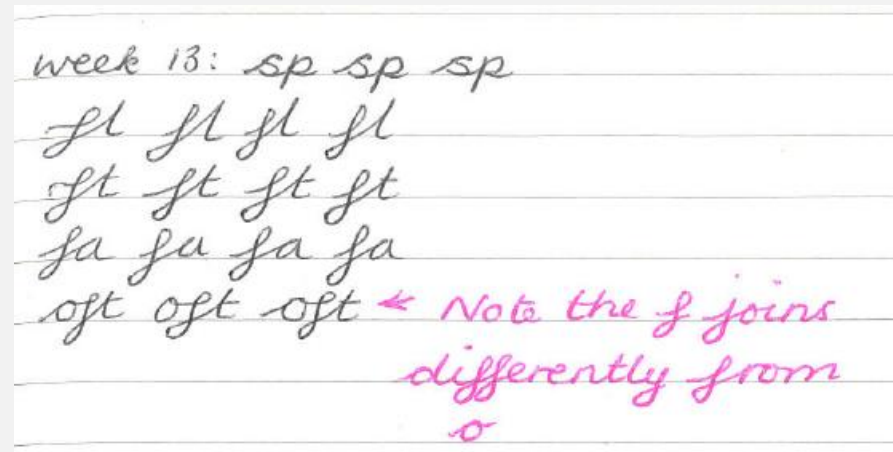 week 13: sp sp sp
fl fl fl fl
ft ft ft ft
fa fa fa fa
oft oft oft ← Note the f joins
differently from
o